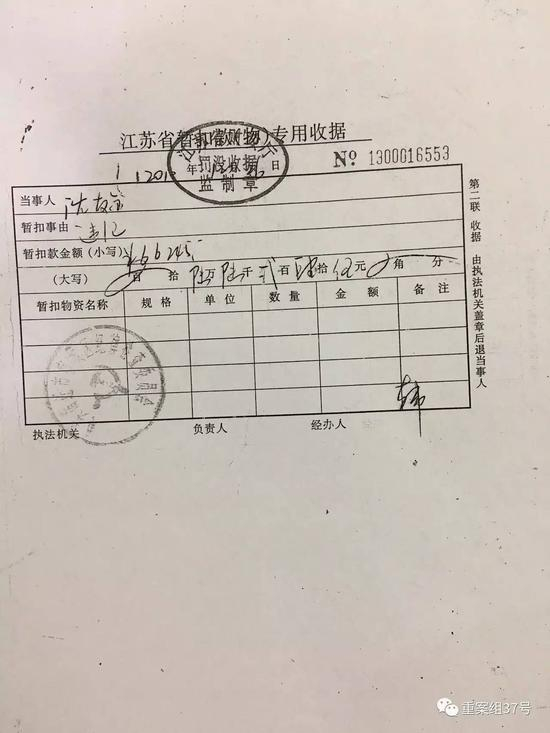 江苏省暂扣款(物)专用收据
罚没收据
监制章
年 日
№ 1300016553
当事人
暂扣事由 违纪
暂扣款金额(小写) ¥66245
(大写) 百 拾 陆万 陆千 贰百 肆拾 伍元 角 分
暂扣物资名称 规格 单位 数量 金额 备注
执法机关 负责人 经办人
第二联 收据 由执法机关盖章后退当事人
重案组37号